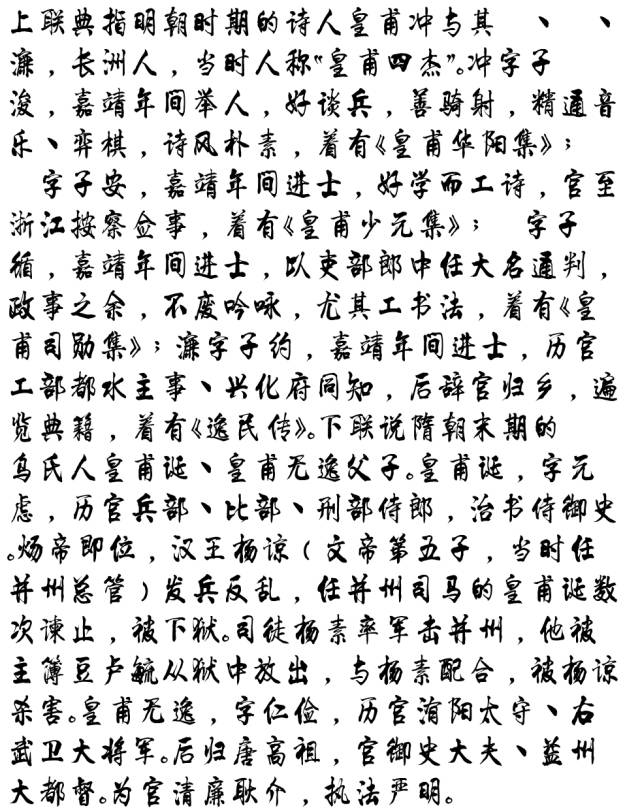 上联典指明朝时期的诗人皇甫冲与其 、 、
濂，长洲人，当时人称“皇甫四杰”。冲字子
浚，嘉靖年间举人，好谈兵，善骑射，精通音
乐、弈棋，诗风朴素，着有《皇甫华阳集》；
字子安，嘉靖年间进士，好学而工诗，官至
浙江按察佥事，着有《皇甫少元集》； 字子
循，嘉靖年间进士，以吏部郎中任大名通判，
政事之余，不废吟咏，尤其工书法，着有《皇
甫司勋集》；濂字子约，嘉靖年间进士，历官
工部都水主事、兴化府同知，后辞官归乡，遍
览典籍，着有《逸民传》。下联说隋朝末期的
乌氏人皇甫诞、皇甫无逸父子。皇甫诞，字元
虑，历官兵部、比部、刑部侍郎，治书侍御史
。炀帝即位，汉王杨谅（文帝第五子，当时任
并州总管）发兵反乱，任并州司马的皇甫诞数
次谏止，被下狱。司徒杨素率军击并州，他被
主簿豆卢毓从狱中放出，与杨素配合，被杨谅
杀害。皇甫无逸，字仁俭，历官淯阳太守、右
武卫大将军。后归唐高祖，官御史大夫、益州
大都督。为官清廉耿介，执法严明。